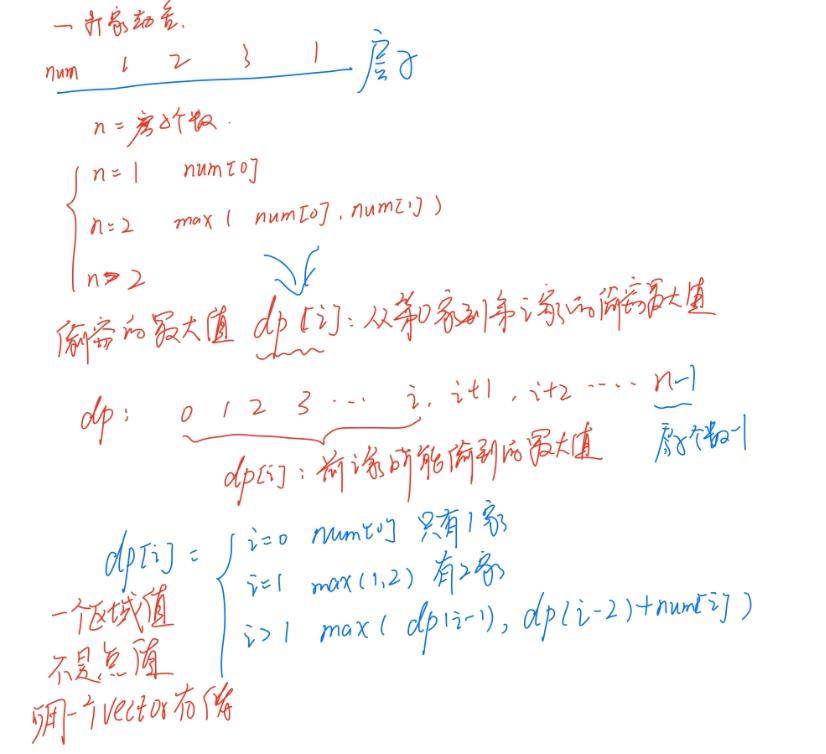 一 打家劫舍.
num 1 2 3 1 房子
n = 房子个数.
n = 1 num[0]
n = 2 max ( num[0], num[1] )
n > 2
偷窃的最大值 dp[i]: 从第0家到第i家的偷窃最大值
dp: 0 1 2 3 ... i, i+1, i+2 ..... n-1
房子个数-1
dp[i]: 前i家所能偷到的最大值
dp[i] =
i=0 num[0] 只有1家
i=1 max(1,2) 有2家
i>1 max( dp(i-1), dp(i-2)+num[i] )
一个区域值
不是点值
用一个vector存储